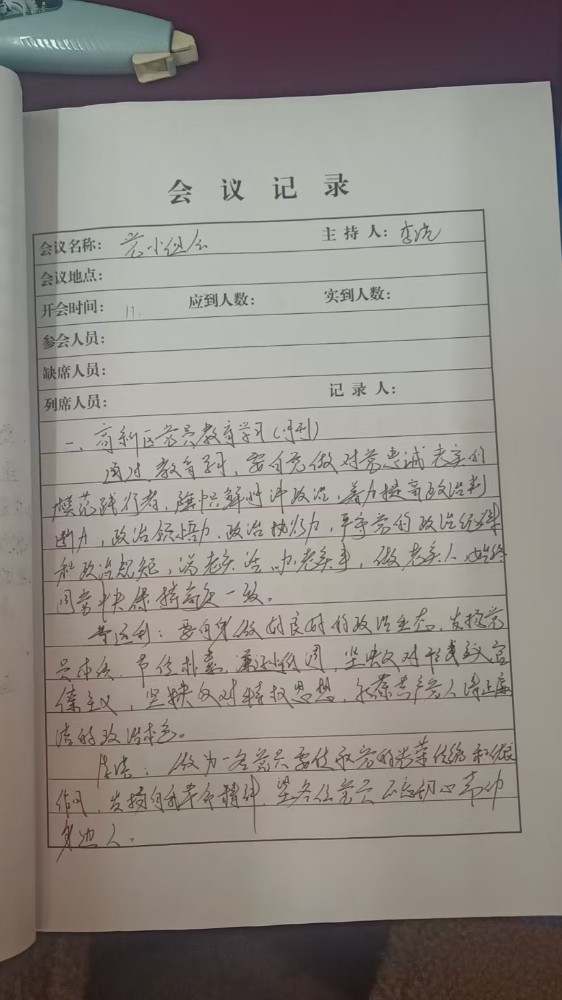 会议记录
会议名称：党小组会 主持人：李浩
会议地点：
开会时间：11. 应到人数： 实到人数：
参会人员：
缺席人员：
列席人员： 记录人：
一、高新区党员教育学习(月刊)
通过教育学习，要自觉做对党忠诚老实的
模范践行者，旗帜鲜明讲政治，着力提高政治判
断力，政治领悟力、政治执行力，严守党的政治纪律
和政治规矩，说老实话、办老实事，做老实人，始终
同党中央保持高度一致。
要自身做好良好的政治生态，发扬党
员本色，节俭朴素，坚决反对形式主义官
僚主义，坚决反对特权思想，永葆共产党人清正廉
洁的政治本色。
做为一名党员要传承党的光荣传统和优良
作风，发扬自我革命精神，望各位党员不忘初心帮助
身边人．